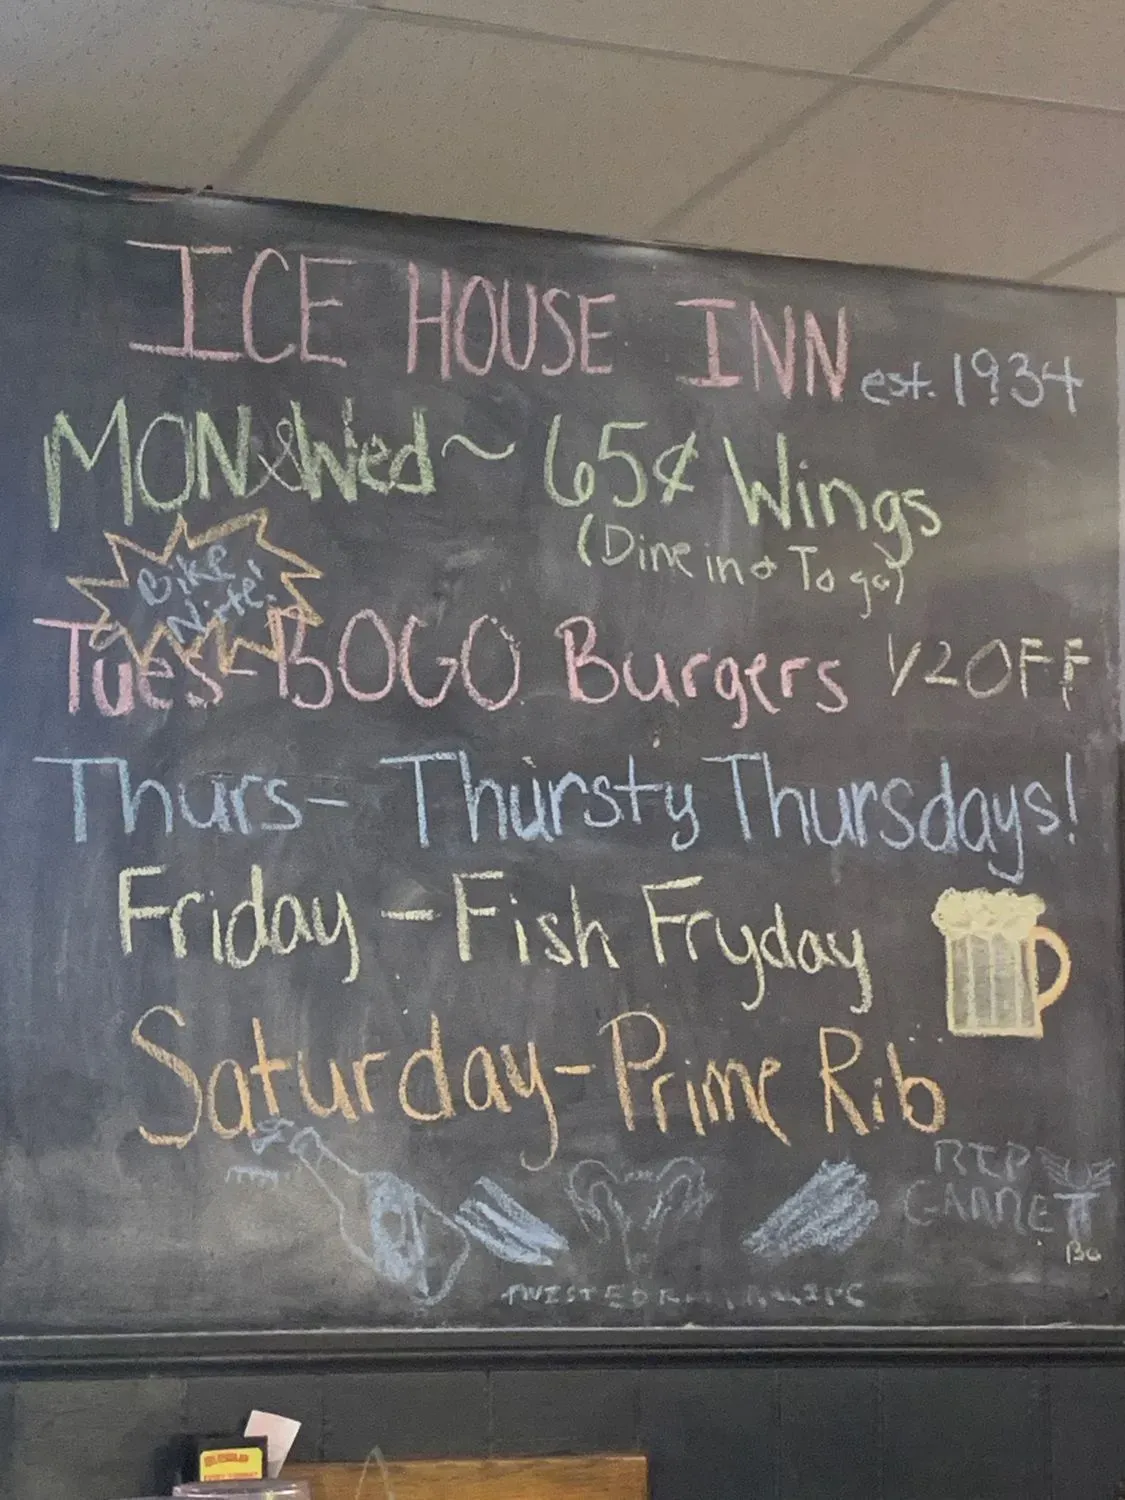 ICE HOUSE INN est. 1934
MON & Wed ~ 65¢ Wings
(Dine in & To go)
Bike
Nite!
Tues - BOGO Burgers 1/2 OFF
Thurs - Thursty Thursdays!
Friday - Fish Fryday
Saturday - Prime Rib
RIP
TWISTED